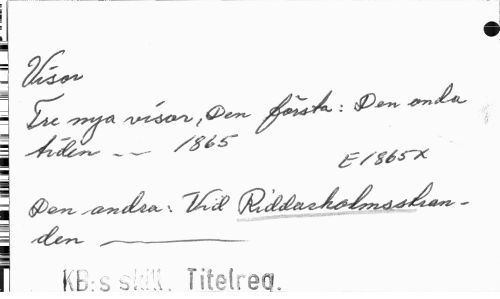 Visor
Tre nya visor, Den första: Den onda
tiden -- 1865
E1865x
Den andra: Vid Riddarholmsstran-
den
KB:s skill. Titelreg.